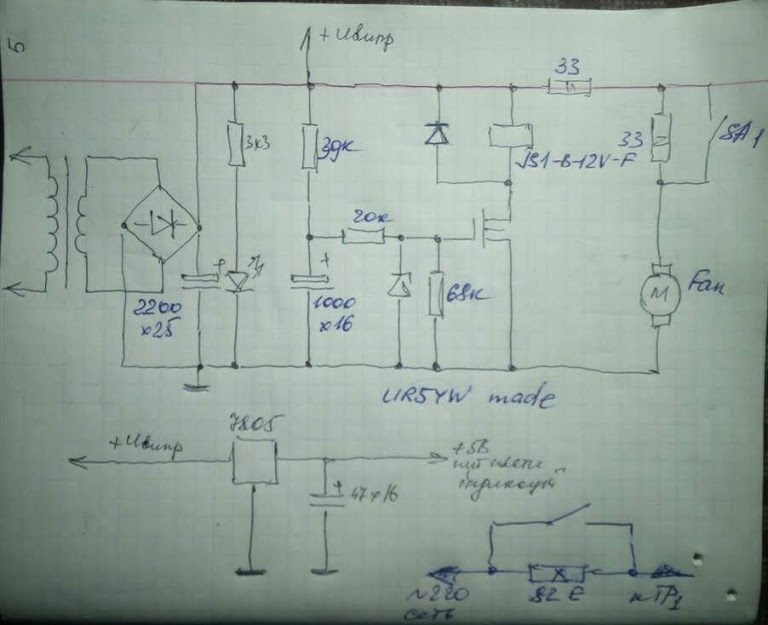 5
+ Uвипр
33
3к3
39к
33
SA1
JS1-B-12V-F
20к
68к
2200
x25
1000
x16
M
Fan
UR5YW made
7805
+Uвипр
+5В
47x16
82 E
~220
сеть
к ТР1